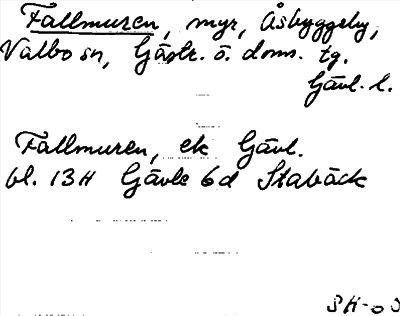 Fallmuren, myr, Åsbyggeby,
Valbo sn, Gästr. ö. doms. tg.
Gävl. l.
Fallmuren, ek Gävl.
bl. 13H Gävle 6d Stabäck